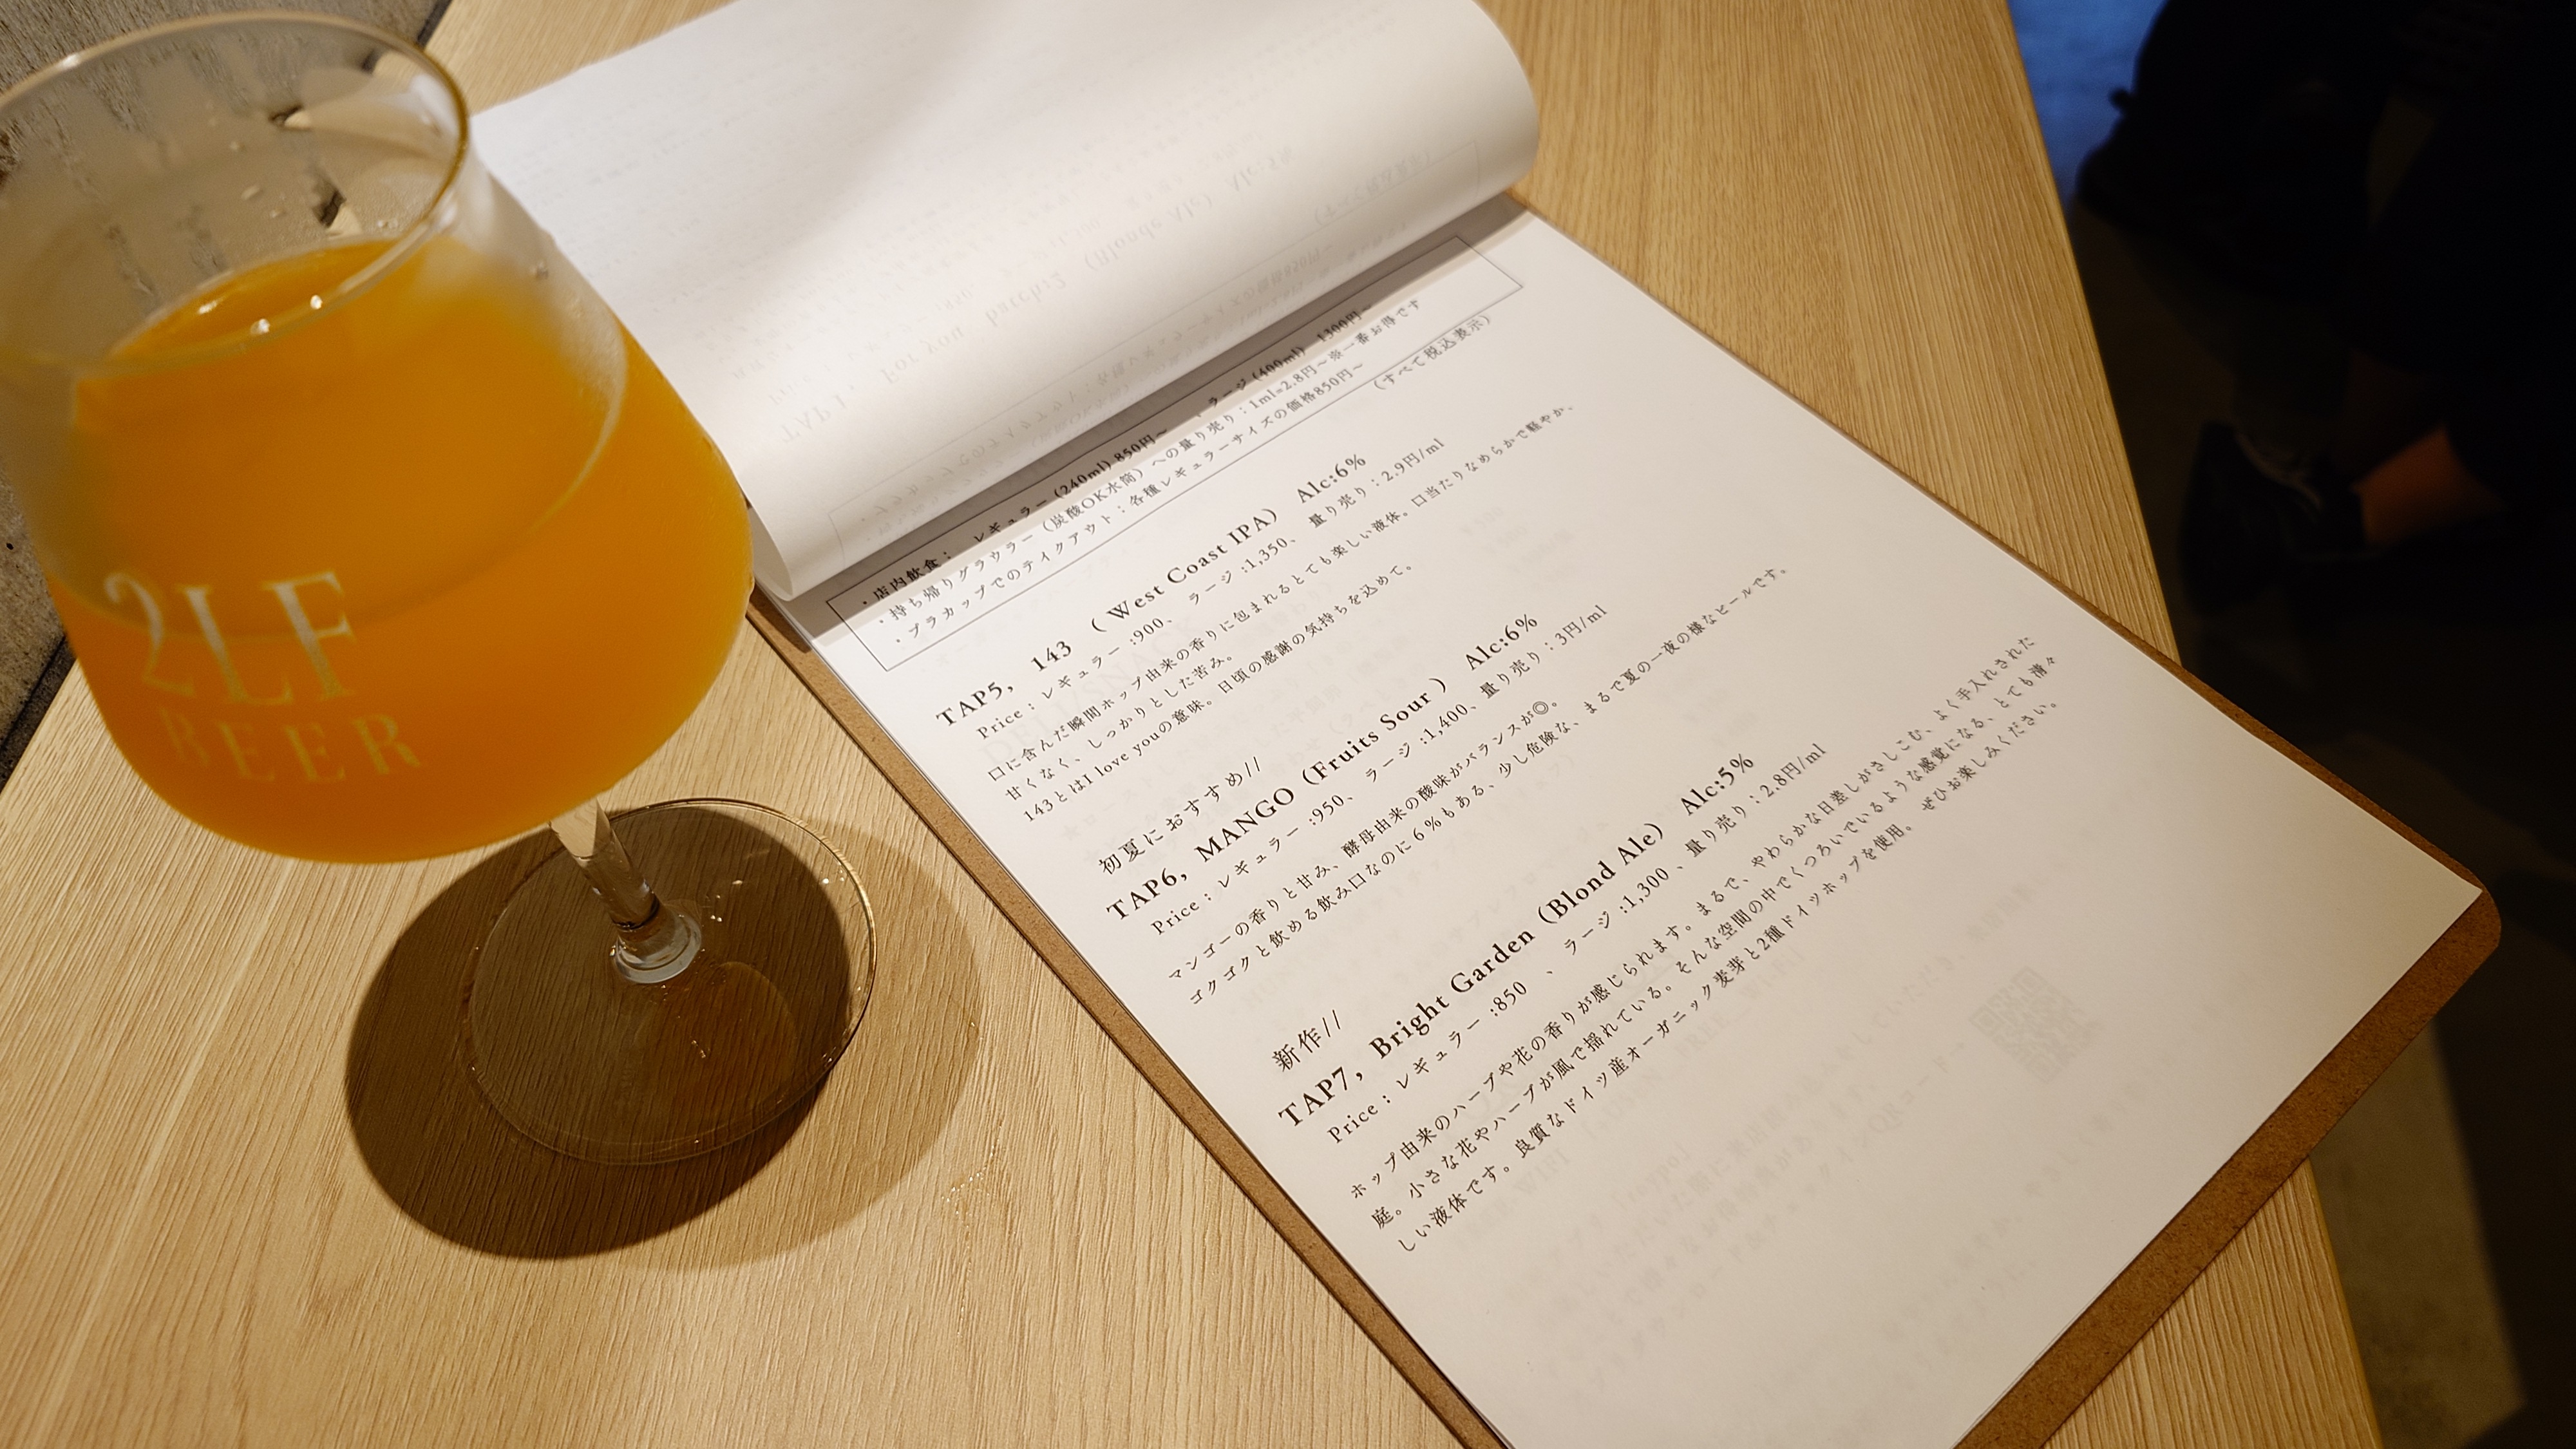 2LF
BEER
・店内飲食： レギュラー (240ml) 850円～ ラージ (400ml) 1300円～
・持ち帰りグラウラー（炭酸OK水筒）への量り売り：1ml=2.8円～※一番お得です
・プラカップでのテイクアウト：各種レギュラーサイズの価格850円～
（すべて税込表示）
TAP5, 143 （West Coast IPA） Alc:6%
Price：レギュラー :900、 ラージ :1,350、 量り売り：2.9円/ml
口に含んだ瞬間ホップ由来の香りに包まれるとても楽しい液体。口当たりなめらかで軽やか、
甘くなく、しっかりとした苦み。
143とはI love youの意味。日頃の感謝の気持ちを込めて。
初夏におすすめ//
TAP6, MANGO（Fruits Sour） Alc:6%
Price：レギュラー :950、 ラージ :1,400、 量り売り：3円/ml
マンゴーの香りと甘み、酵母由来の酸味がバランスが◎。
ゴクゴクと飲める飲み口なのに6％もある、少し危険な、まるで夏の一夜の様なビールです。
新作//
TAP7, Bright Garden（Blond Ale） Alc:5%
Price：レギュラー :850 、 ラージ :1,300 、量り売り：2.8円/ml
ホップ由来のハーブや花の香りが感じられます。まるで、やわらかな日差しがさしこむ、よく手入れされた
庭。小さな花やハーブが風で揺れている。そんな空間の中でくつろいでいるような感覚になる、とても清々
しい液体です。良質なドイツ産オーガニック麦芽と2種ドイツホップを使用。ぜひお楽しみください。